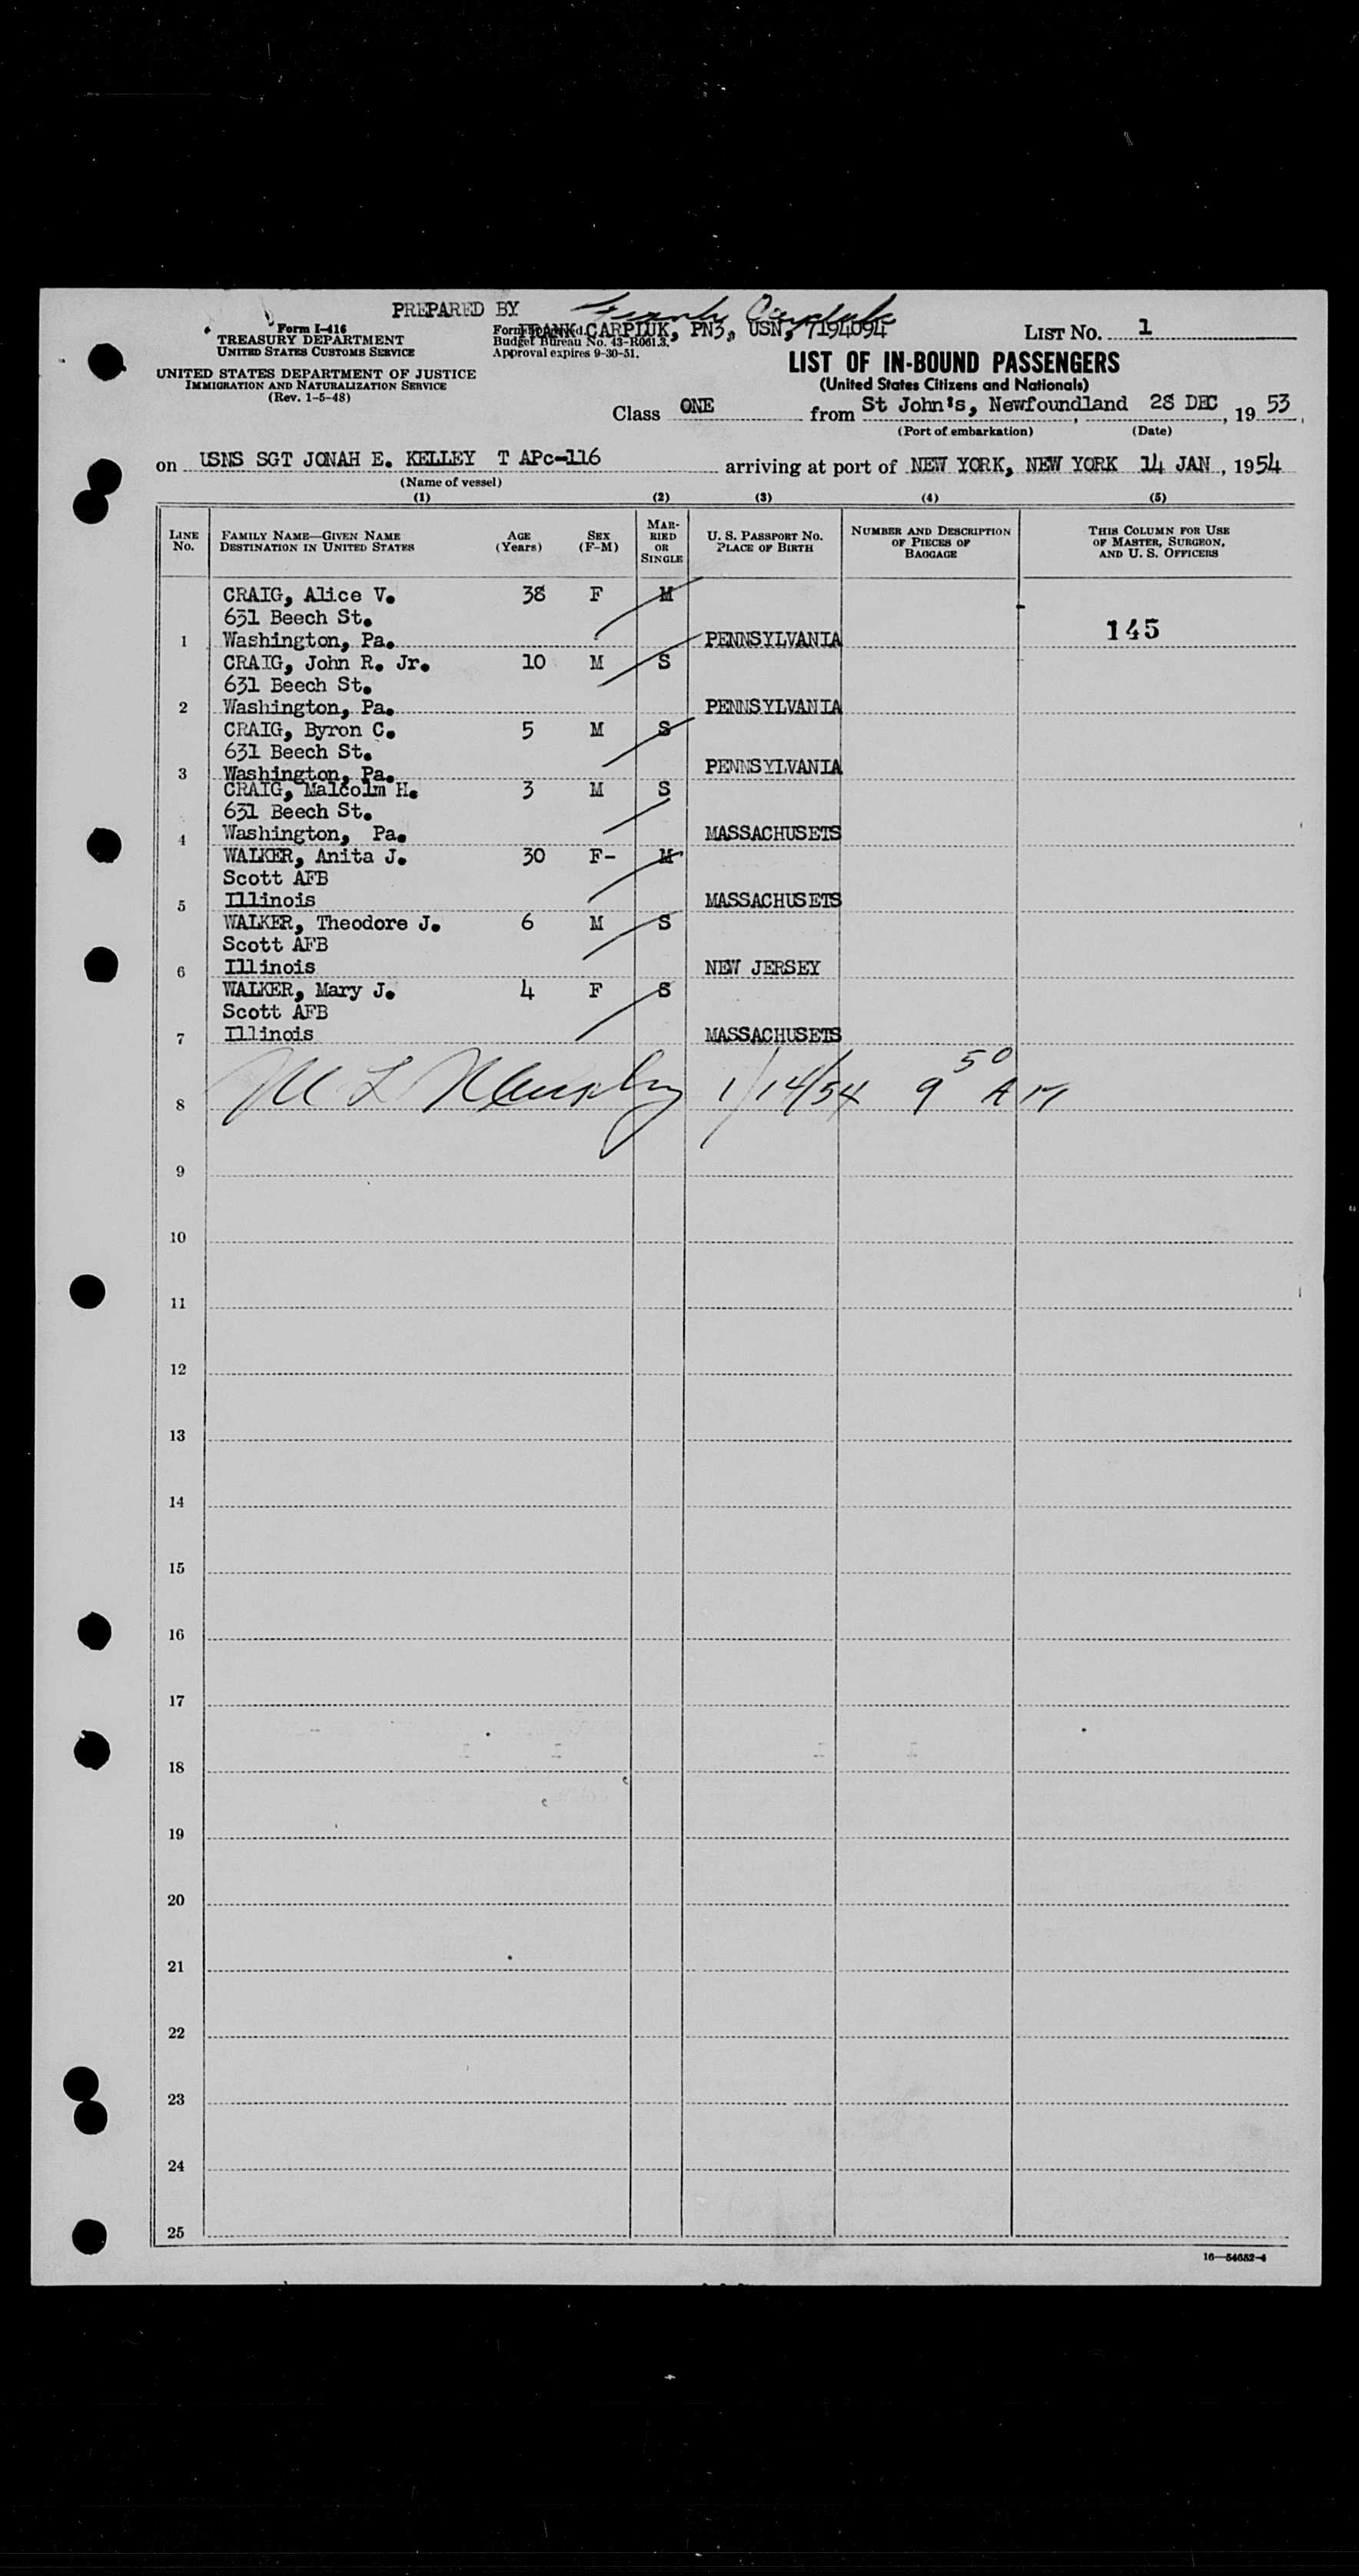 PREPARED BY Frank Carpiuk
Form I-416
TREASURY DEPARTMENT
UNITED STATES CUSTOMS SERVICE
UNITED STATES DEPARTMENT OF JUSTICE
IMMIGRATION AND NATURALIZATION SERVICE
(Rev. 1-5-48)
FRANK CARPIUK, PN3, USN, 7194094
Budget Bureau No. 43-R061.3.
Approval expires 9-30-51.
LIST No. 1
LIST OF IN-BOUND PASSENGERS
(United States Citizens and Nationals)
Class ONE from St John's, Newfoundland, 28 DEC, 19 53
(Port of embarkation) (Date)
on USNS SGT JONAH E. KELLEY T APc-116 arriving at port of NEW YORK, NEW YORK 14 JAN, 1954
(Name of vessel)
(1) (2) (3) (4) (5)
LINE No. FAMILY NAME—GIVEN NAME DESTINATION IN UNITED STATES AGE (Years) SEX (F-M) MARRIED OR SINGLE U. S. PASSPORT No. PLACE OF BIRTH NUMBER AND DESCRIPTION OF PIECES OF BAGGAGE THIS COLUMN FOR USE OF MASTER, SURGEON, AND U. S. OFFICERS
CRAIG, Alice V. 38 F M
631 Beech St.
1 Washington, Pa. PENNSYLVANIA 145
CRAIG, John R. Jr. 10 M S
631 Beech St.
2 Washington, Pa. PENNSYLVANIA
CRAIG, Byron C. 5 M S
631 Beech St.
3 Washington, Pa. PENNSYLVANIA
CRAIG, Malcolm H. 3 M S
631 Beech St.
4 Washington, Pa. MASSACHUSETS
WALKER, Anita J. 30 F- M
Scott AFB
5 Illinois MASSACHUSETS
WALKER, Theodore J. 6 M S
Scott AFB
6 Illinois NEW JERSEY
WALKER, Mary J. 4 F S
Scott AFB
7 Illinois MASSACHUSETS
8 M L 1/14/54 9 50 AM
9
10
11
12
13
14
15
16
17
18
19
20
21
22
23
24
25
16—54652-4